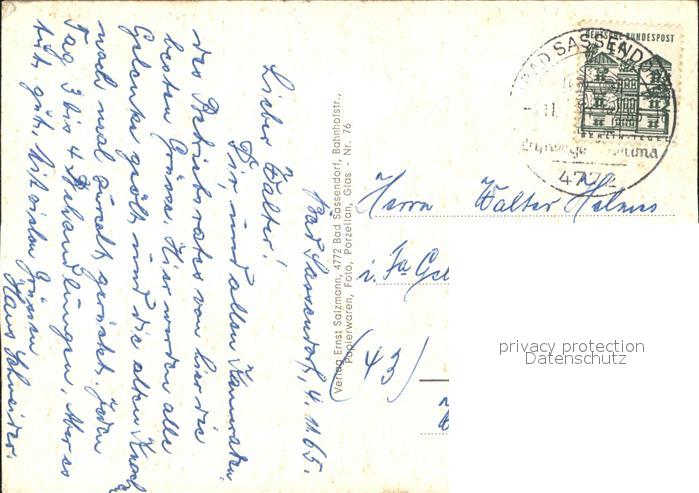 Bad Sassendorf, 4. 11. 65.
Lieber Walter!
Dir, und allen Kameraden
des Betriebsrates von hier die
besten Grüsse. Hier werden alle
Gelenke geölt und die alten Knoch
noch mal gerückt. Jeden
Tag 3 bis 4 Behandlungen. Aber es
tut gut. Mit vielen Grüssen
Hans Schneider.
Verlag Ernst Salzmann, 4772 Bad Sassendorf, Bahnhofstr.,
Papierwaren, Foto, Porzellan, Glas - Nr. 76
DEUTSCHE BUNDESPOST
BAD SASSENDORF
11.
4772
Herrn Walter Helmes
i. Fa Ge
(43)
privacy protection
Datenschutz